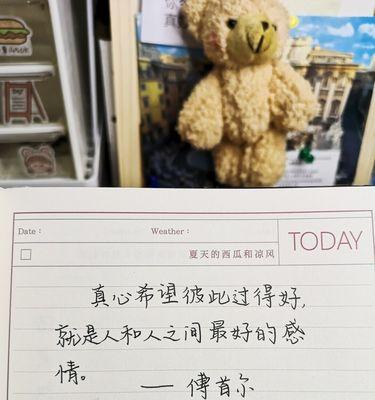 Date :
Weather :
夏天的西瓜和凉风
TODAY
真心希望彼此过得好,
就是人和人之间最好的感
情。
— 傅首尔